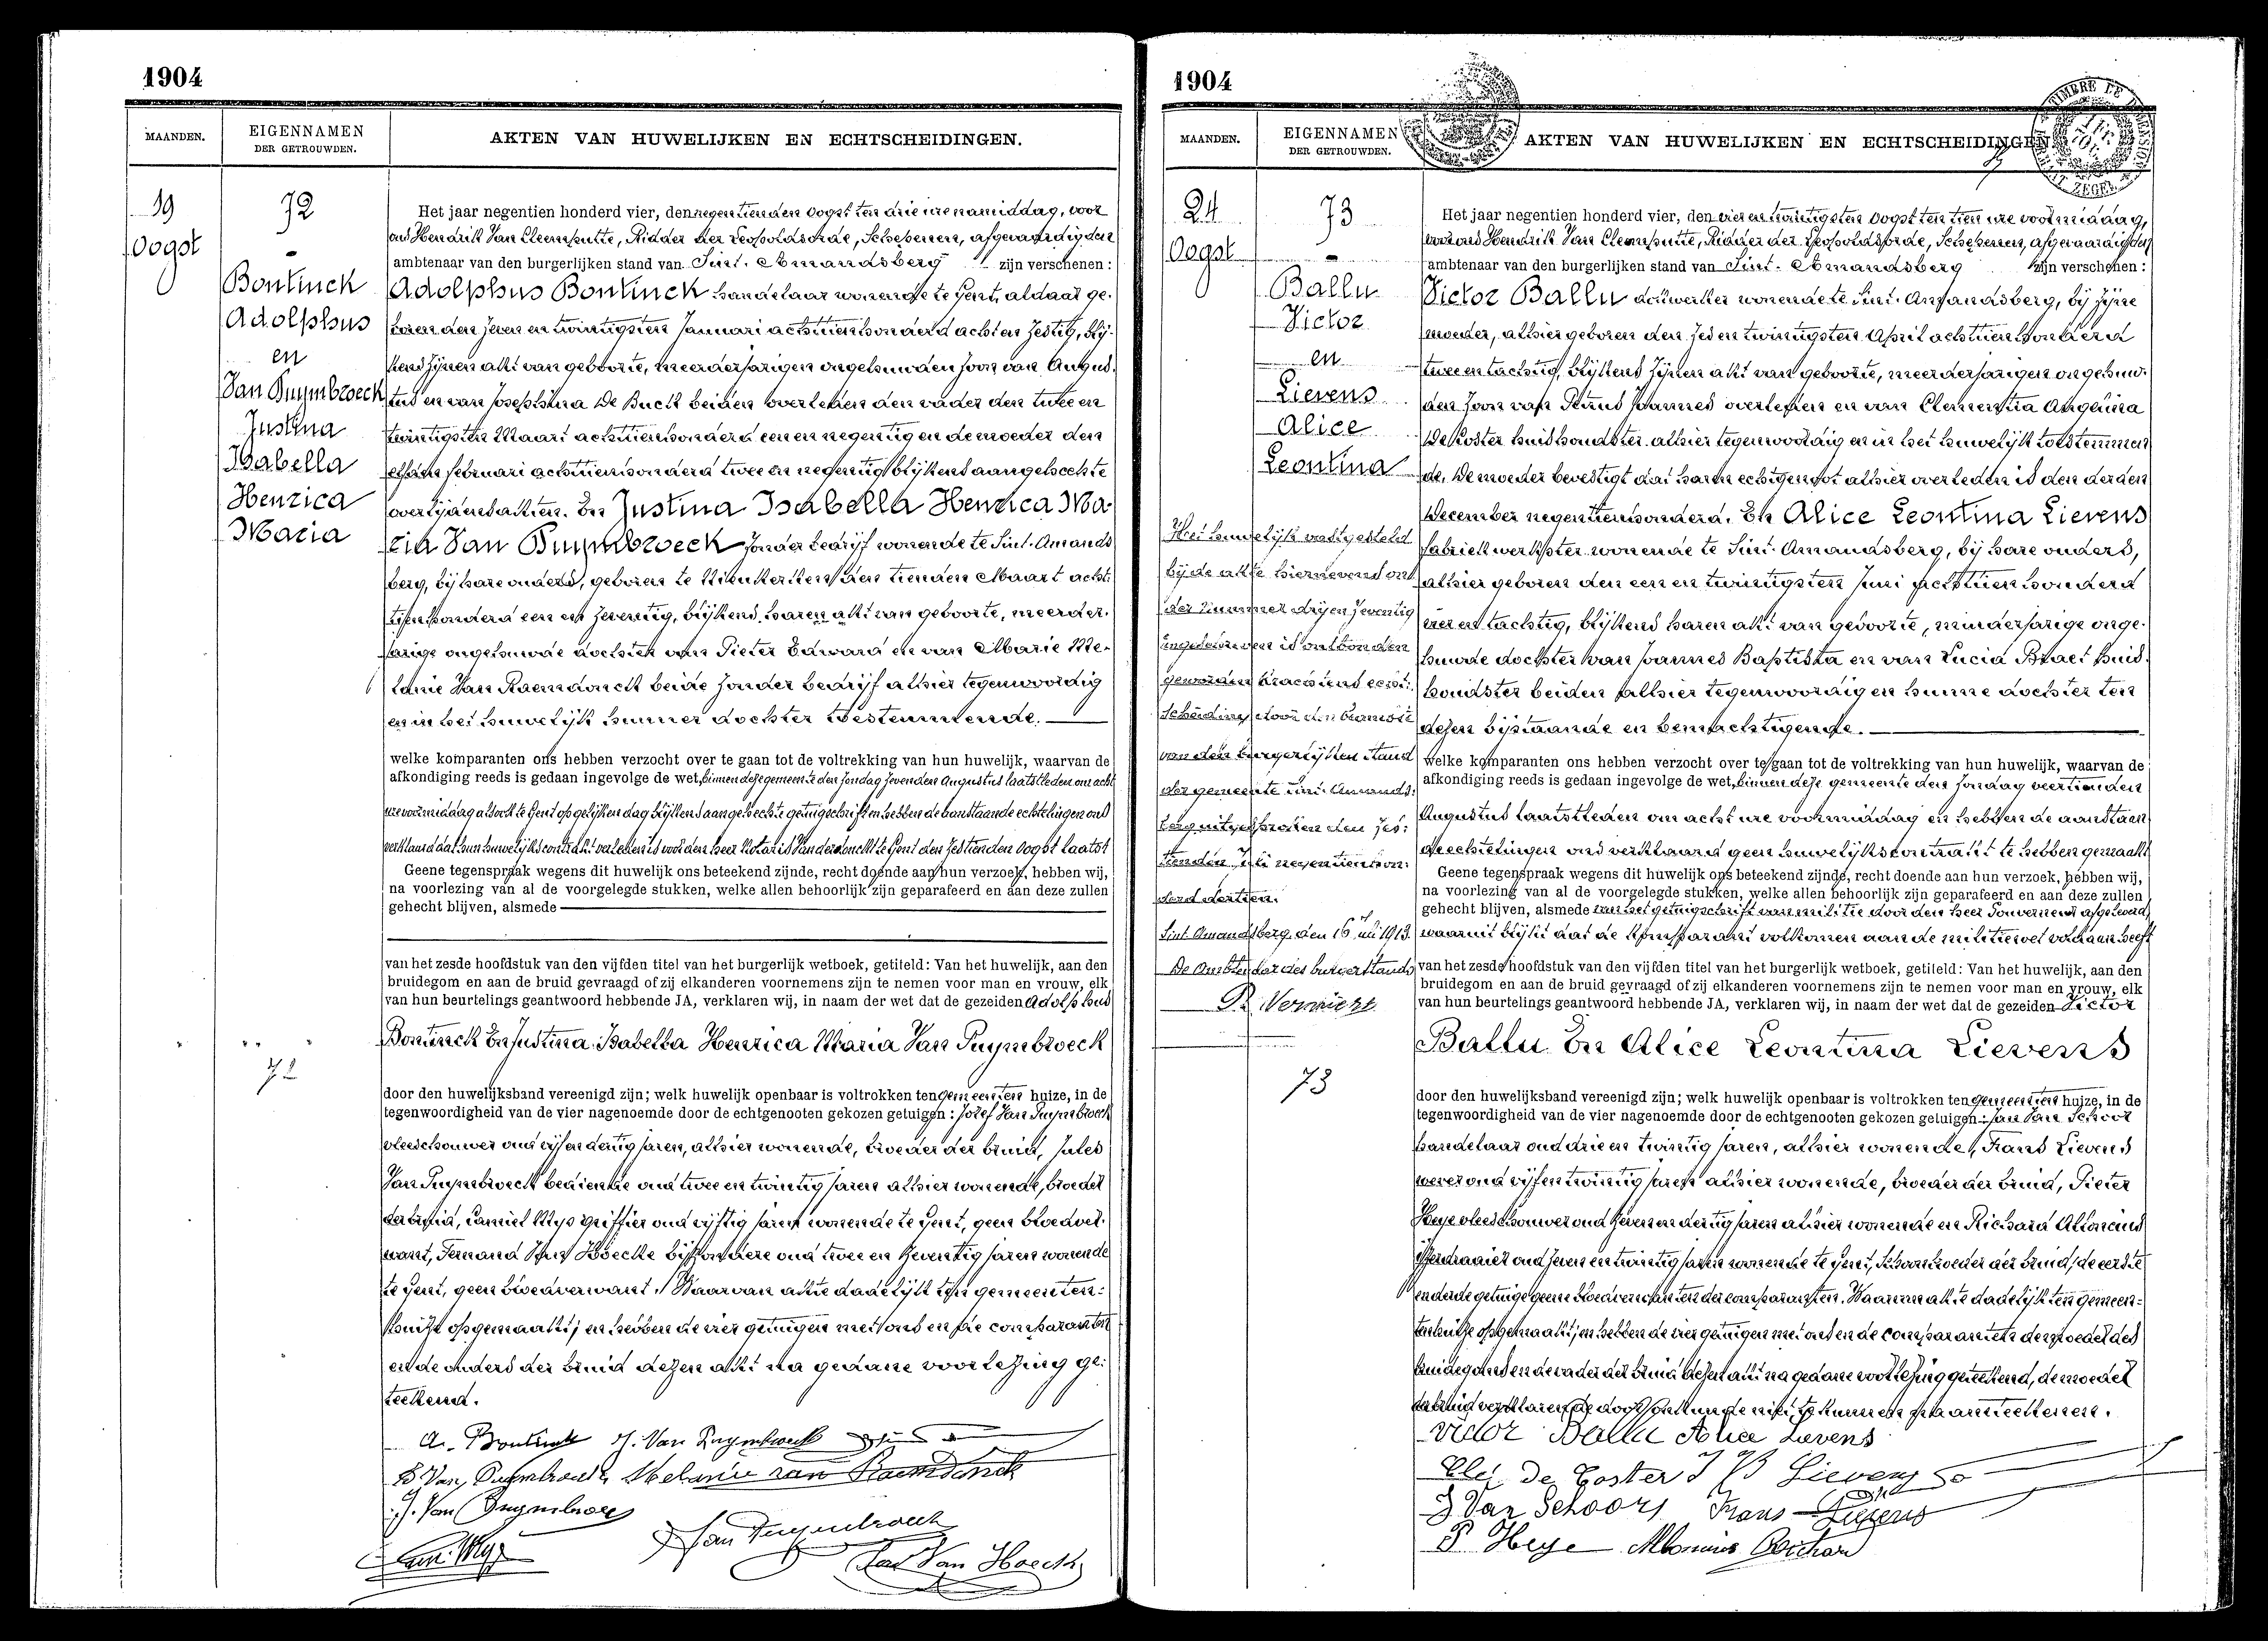 1904
MAANDEN.
EIGENNAMEN
DER GETROUWDEN.
AKTEN VAN HUWELIJKEN EN ECHTSCHEIDINGEN.
19
Oogst
72
Bontinck
Adolphus
en
Van Puymbroeck
Justina
Isabella
Henrica
Maria
Het jaar negentien honderd vier, den negentienden Oogst ten drie ure namiddag, voor
ons Hendrik Van Cleemputte, Ridder der Leopoldsorde, Schepenen, afgevaardigden
ambtenaar van den burgerlijken stand van Sint. Amandsberg zijn verschenen:
Adolphus Bontinck handelaar wonende te Gent, aldaar ge-
boren den zeven en twintigsten Januari achttienhonderd acht en zestig, blij-
kens zijnen akt van geboorte, meerderjarigen ongehuwden zoon van Augus-
tus en van Josephina De Buck beiden overleden den vader den twee en
twintigsten Maart achttienhonderd een en negentig en de moeder den
elfden februari achttienhonderd twee en negentig blijkens aangehechte
overlijdensakten. En Justina Isabella Henrica Ma-
ria Van Puymbroeck zonder bedrijf wonende te Sint. Amands
berg, bij hare ouders, geboren te den tienden Maart acht-
tienhonderd een en zeventig, blijkens haren akt van geboorte, meerder-
jarige ongehuwde dochter van Pieter Edward en van Marie Me-
lanie Van Raemdonck beide zonder bedrijf alhier tegenwoordig
en in het huwelijk hunner dochter toestemmende.
welke komparanten ons hebben verzocht over te gaan tot de voltrekking van hun huwelijk, waarvan de
afkondiging reeds is gedaan ingevolge de wet, binnen deze gemeente den Zondag zevenden Augustus laatstleden om acht
ure voormiddag alsook te Gent op gelijken dag blijkens aangehechte getuigschriften hebben de aanstaande echtelingen ons
verklaard dat hun huwelijkscontrakt verleden is voor den heer Notaris Vanderdonckt te Gent den zestienden Oogst laatst
Geene tegenspraak wegens dit huwelijk ons beteekend zijnde, recht doende aan hun verzoek, hebben wij,
na voorlezing van al de voorgelegde stukken, welke allen behoorlijk zijn geparafeerd en aan deze zullen
gehecht blijven, alsmede
van het zesde hoofdstuk van den vijfden titel van het burgerlijk wetboek, getiteld: Van het huwelijk, aan den
bruidegom en aan de bruid gevraagd of zij elkanderen voornemens zijn te nemen voor man en vrouw, elk
van hun beurtelings geantwoord hebbende JA, verklaren wij, in naam der wet dat de gezeiden Adolphus
Bontinck En Justina Isabella Henrica Maria Van Puymbroeck
72
door den huwelijksband vereenigd zijn; welk huwelijk openbaar is voltrokken ten gemeenten huize, in de
tegenwoordigheid van de vier nagenoemde door de echtgenooten gekozen getuigen: Jozef Van Puymbroeck
vleeschouwer oud vijf en dertig jaren, alhier wonende, broeder der bruid, Jules
Van Puymbroeck bediende oud twee en twintig jaren alhier wonende, broeder
der bruid, Camiel Wijs griffier oud vijftig jaren wonende te Gent, geen bloedver-
want, Fernand Van Hoecke bijzondere oud twee en zeventig jaren wonende
te Gent, geen bloedverwant. Waarvan akte dadelijk ten gemeenten-
huize opgemaakt; en hebben de vier getuigen met ons en de comparanten
en de ouders der bruid dezen akt na gedane voorlezing ge-
teekend.
A. Bontinck J. Van Puymbroeck
E Van Puymbroeck Melanie van Raemdonck
J. Van Puymbroeck
J Van Puymbroeck
Van Hoecke
1904
MAANDEN.
EIGENNAMEN
DER GETROUWDEN.
AKTEN VAN HUWELIJKEN EN ECHTSCHEIDINGEN
24
Oogst
73
Ballu
Victor
en
Lievens
Alice
Leontina
Het huwelijk vastgesteld
bij de akte hiernevens on-
der nummer drij en zeventig
ingeschreven is ontbonden
geworden krachtens echt-
scheiding door den beambte
van den burgerlijken stand
der gemeente Sint. Amands-
berg uitgesproken den zes-
tienden Juli negentienhon-
derd dertien.
Sint Amandsberg, den 16 Juli 1913.
De Ambtenaar des burgerstands
73
Het jaar negentien honderd vier, den vier en twintigsten Oogst ten tien ure voormiddag,
voor ons Hendrik Van Cleemputte, Ridder der Leopoldsorde, Schepenen, afgevaardigden
ambtenaar van den burgerlijken stand van Sint. Amandsberg zijn verschenen:
Victor Ballu wonende te Sint. Amandsberg, bij zijne
moeder, alhier geboren den zes en twintigsten April achttienhonderd
twee en tachtig, blijkens zijnen akt van geboorte, meerderjarigen ongehuw-
den zoon van Petrus Joannes overleden en van Clementia Angelina
De Koster huishoudster alhier tegenwoordig en in het huwelijk toestemmen
de. De moeder bevestigt dat haren echtgenoot alhier overleden is den derden
December negentienhonderd. En Alice Leontina Lievens
fabriekwerkster wonende te Sint. Amandsberg, bij hare ouders,
alhier geboren den een en twintigsten Juni achttienhonderd
vier en tachtig, blijkens haren akt van geboorte, minderjarige onge-
huwde dochter van Joannes Baptista en van Lucia Braet huis-
houdster beiden alhier tegenwoordig en hunne dochter ten
dezen bijstaande en bemachtigende.
welke komparanten ons hebben verzocht over te gaan tot de voltrekking van hun huwelijk, waarvan de
afkondiging reeds is gedaan ingevolge de wet, binnen deze gemeente den Zondag veertienden
Augustus laatstleden om acht ure voormiddag en hebben de aanstaan
de echtelingen ons verklaard geen huwelijkscontrakt te hebben gemaakt
Geene tegenspraak wegens dit huwelijk ons beteekend zijnde, recht doende aan hun verzoek, hebben wij,
na voorlezing van al de voorgelegde stukken, welke allen behoorlijk zijn geparafeerd en aan deze zullen
gehecht blijven, alsmede van het getuigschrift van militie door den heer Gouverneur afgeleverd,
waaruit blijkt dat de komparant volkomen aan de militiewet voldaan heeft
van het zesde hoofdstuk van den vijfden titel van het burgerlijk wetboek, getiteld: Van het huwelijk, aan den
bruidegom en aan de bruid gevraagd of zij elkanderen voornemens zijn te nemen voor man en vrouw, elk
van hun beurtelings geantwoord hebbende JA, verklaren wij, in naam der wet dat de gezeiden Victor
Ballu En Alice Leontina Lievens
door den huwelijksband vereenigd zijn; welk huwelijk openbaar is voltrokken ten gemeenten huize, in de
tegenwoordigheid van de vier nagenoemde door de echtgenooten gekozen getuigen: Jan Van Schoor
handelaar oud drie en twintig jaren, alhier wonende, Frans Lievens
wever oud vijf en twintig jaren alhier wonende, broeder der bruid, Pieter
Heye vleeschouwer oud zeven en dertig jaren alhier wonende en Richard
ijzerdraaier oud zeven en twintig jaren wonende te Gent, schoonbroeder der bruid, de eerste
en derde getuige geene bloedverwanten der comparanten. Waarvan akte dadelijk ten gemeen-
tenhuize opgemaakt; en hebben de vier getuigen met ons en de comparanten de moeder des
bruidegoms en de vader der bruid dezen akt na gedane voorlezing geteekend, de moeder
der bruid verklarende door onkunde niet te kunnen teekenen.
Victor Ballu Alice Lievens
Cle. De Coster J B Lievens
J Van Schoors Frans Lievens
P Heye